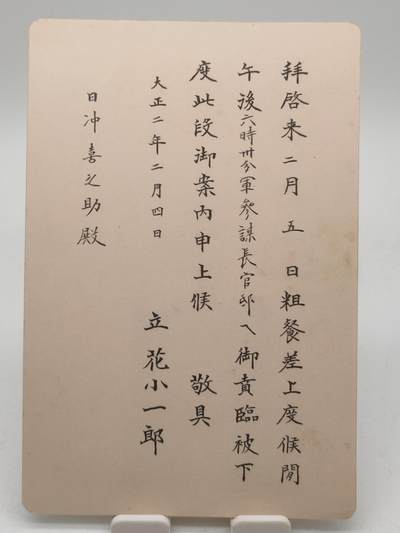 拝啓来二月五日粗餐差上度候間
午後六時卅分軍参謀長官邸へ御賁臨被下
度此段御案内申上候 敬具
大正二年二月四日
立花小一郎
日冲喜之助殿